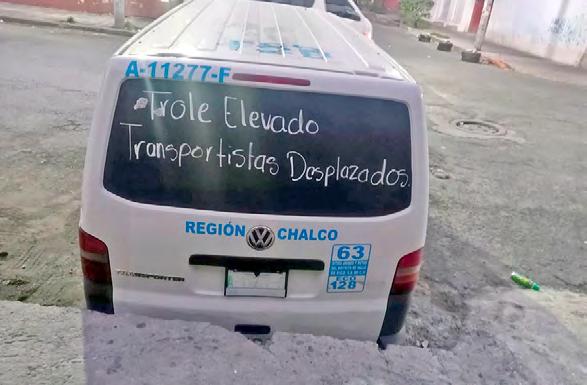 A-11277-F
Trole Elevado
Transportistas Desplazados.
REGIÓN CHALCO
63
ECO
128
TRANSPORTER